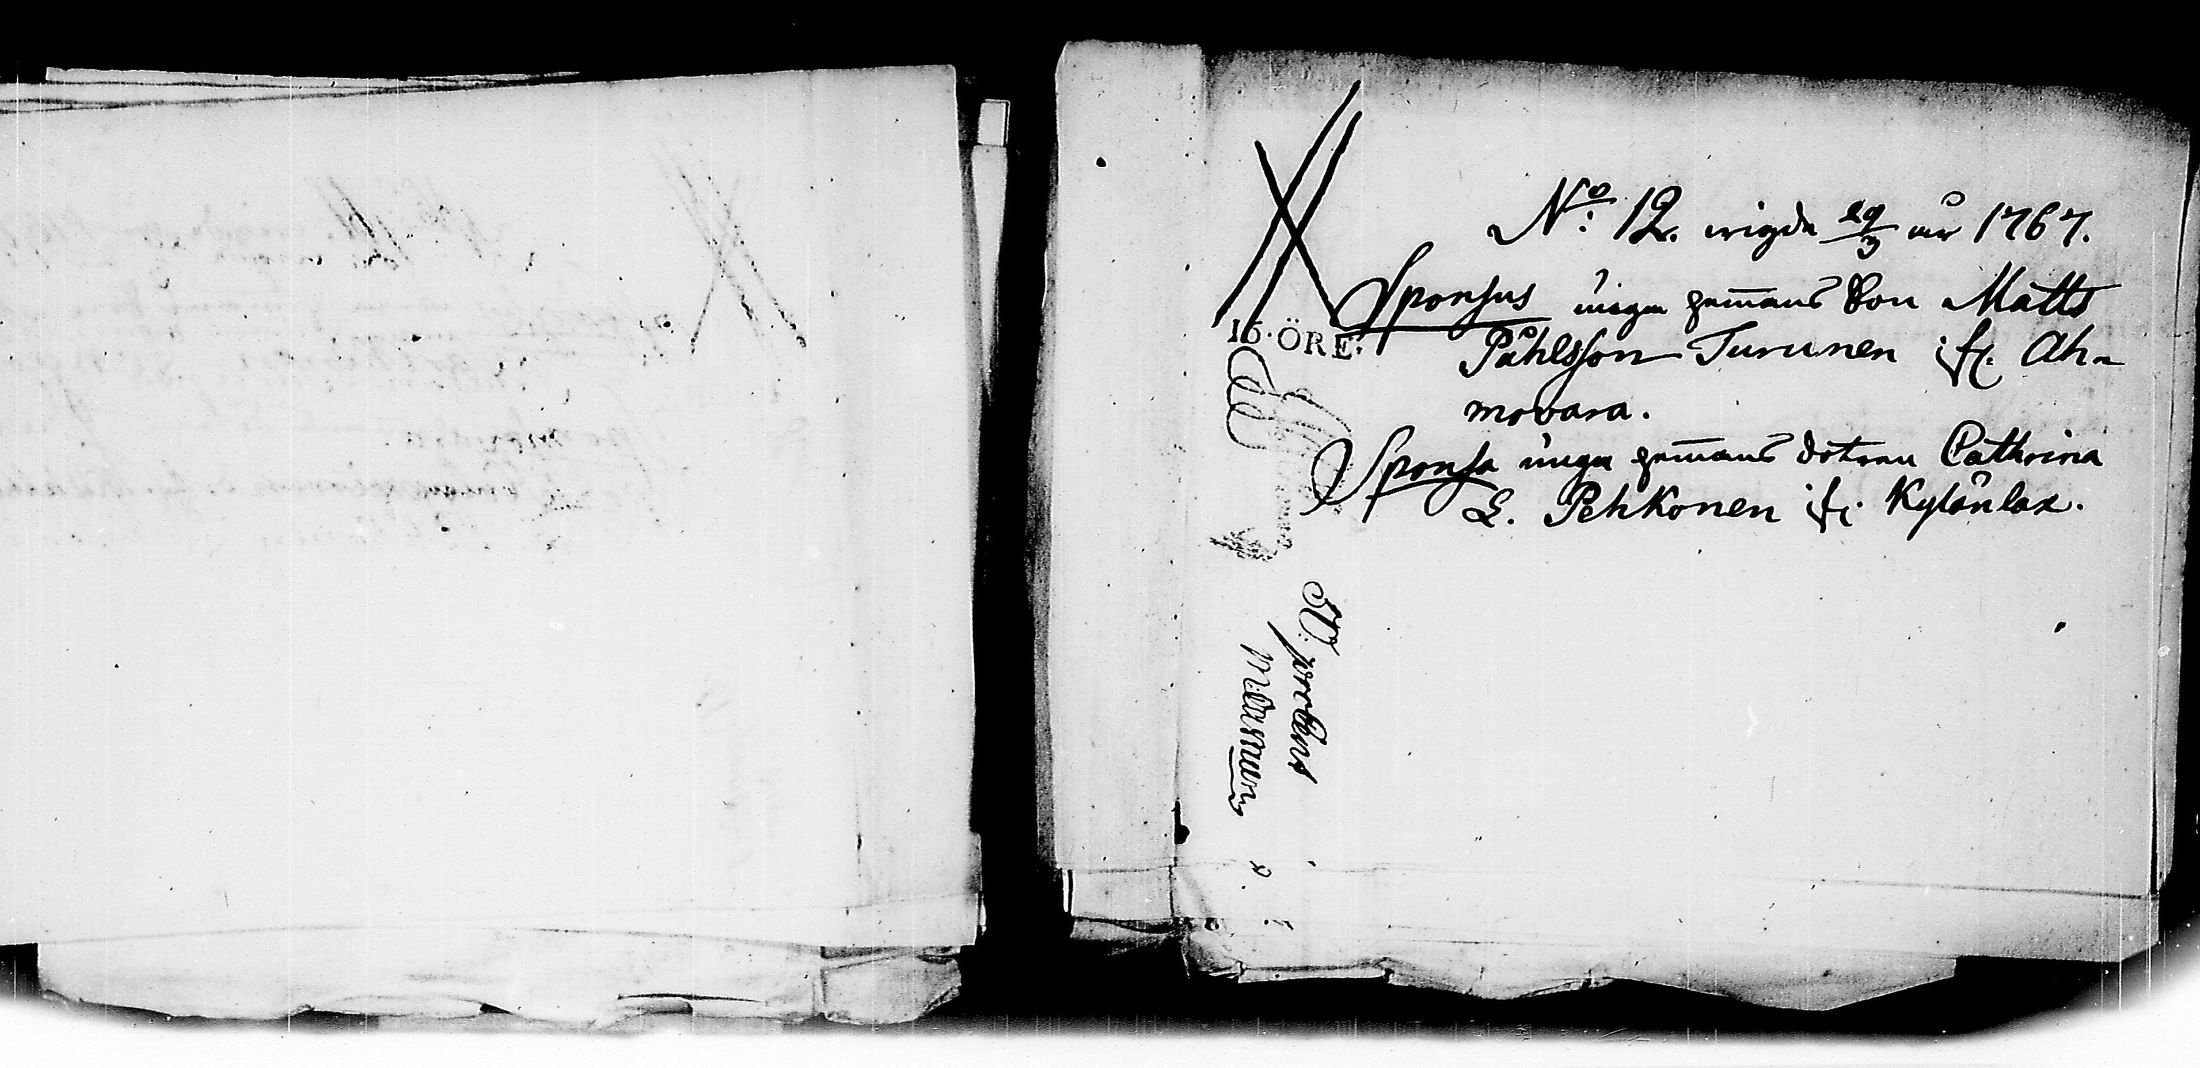 No: 12. wigde 29/3 år 1767.
Sponsus unga hemans Son Matts
Påhlsson Turunen ifr. Ah-
movara.
Sponsa unga hemans dotren Cathrina
L. Pehkonen ifr. Kylänlax.
16·ÖRE·